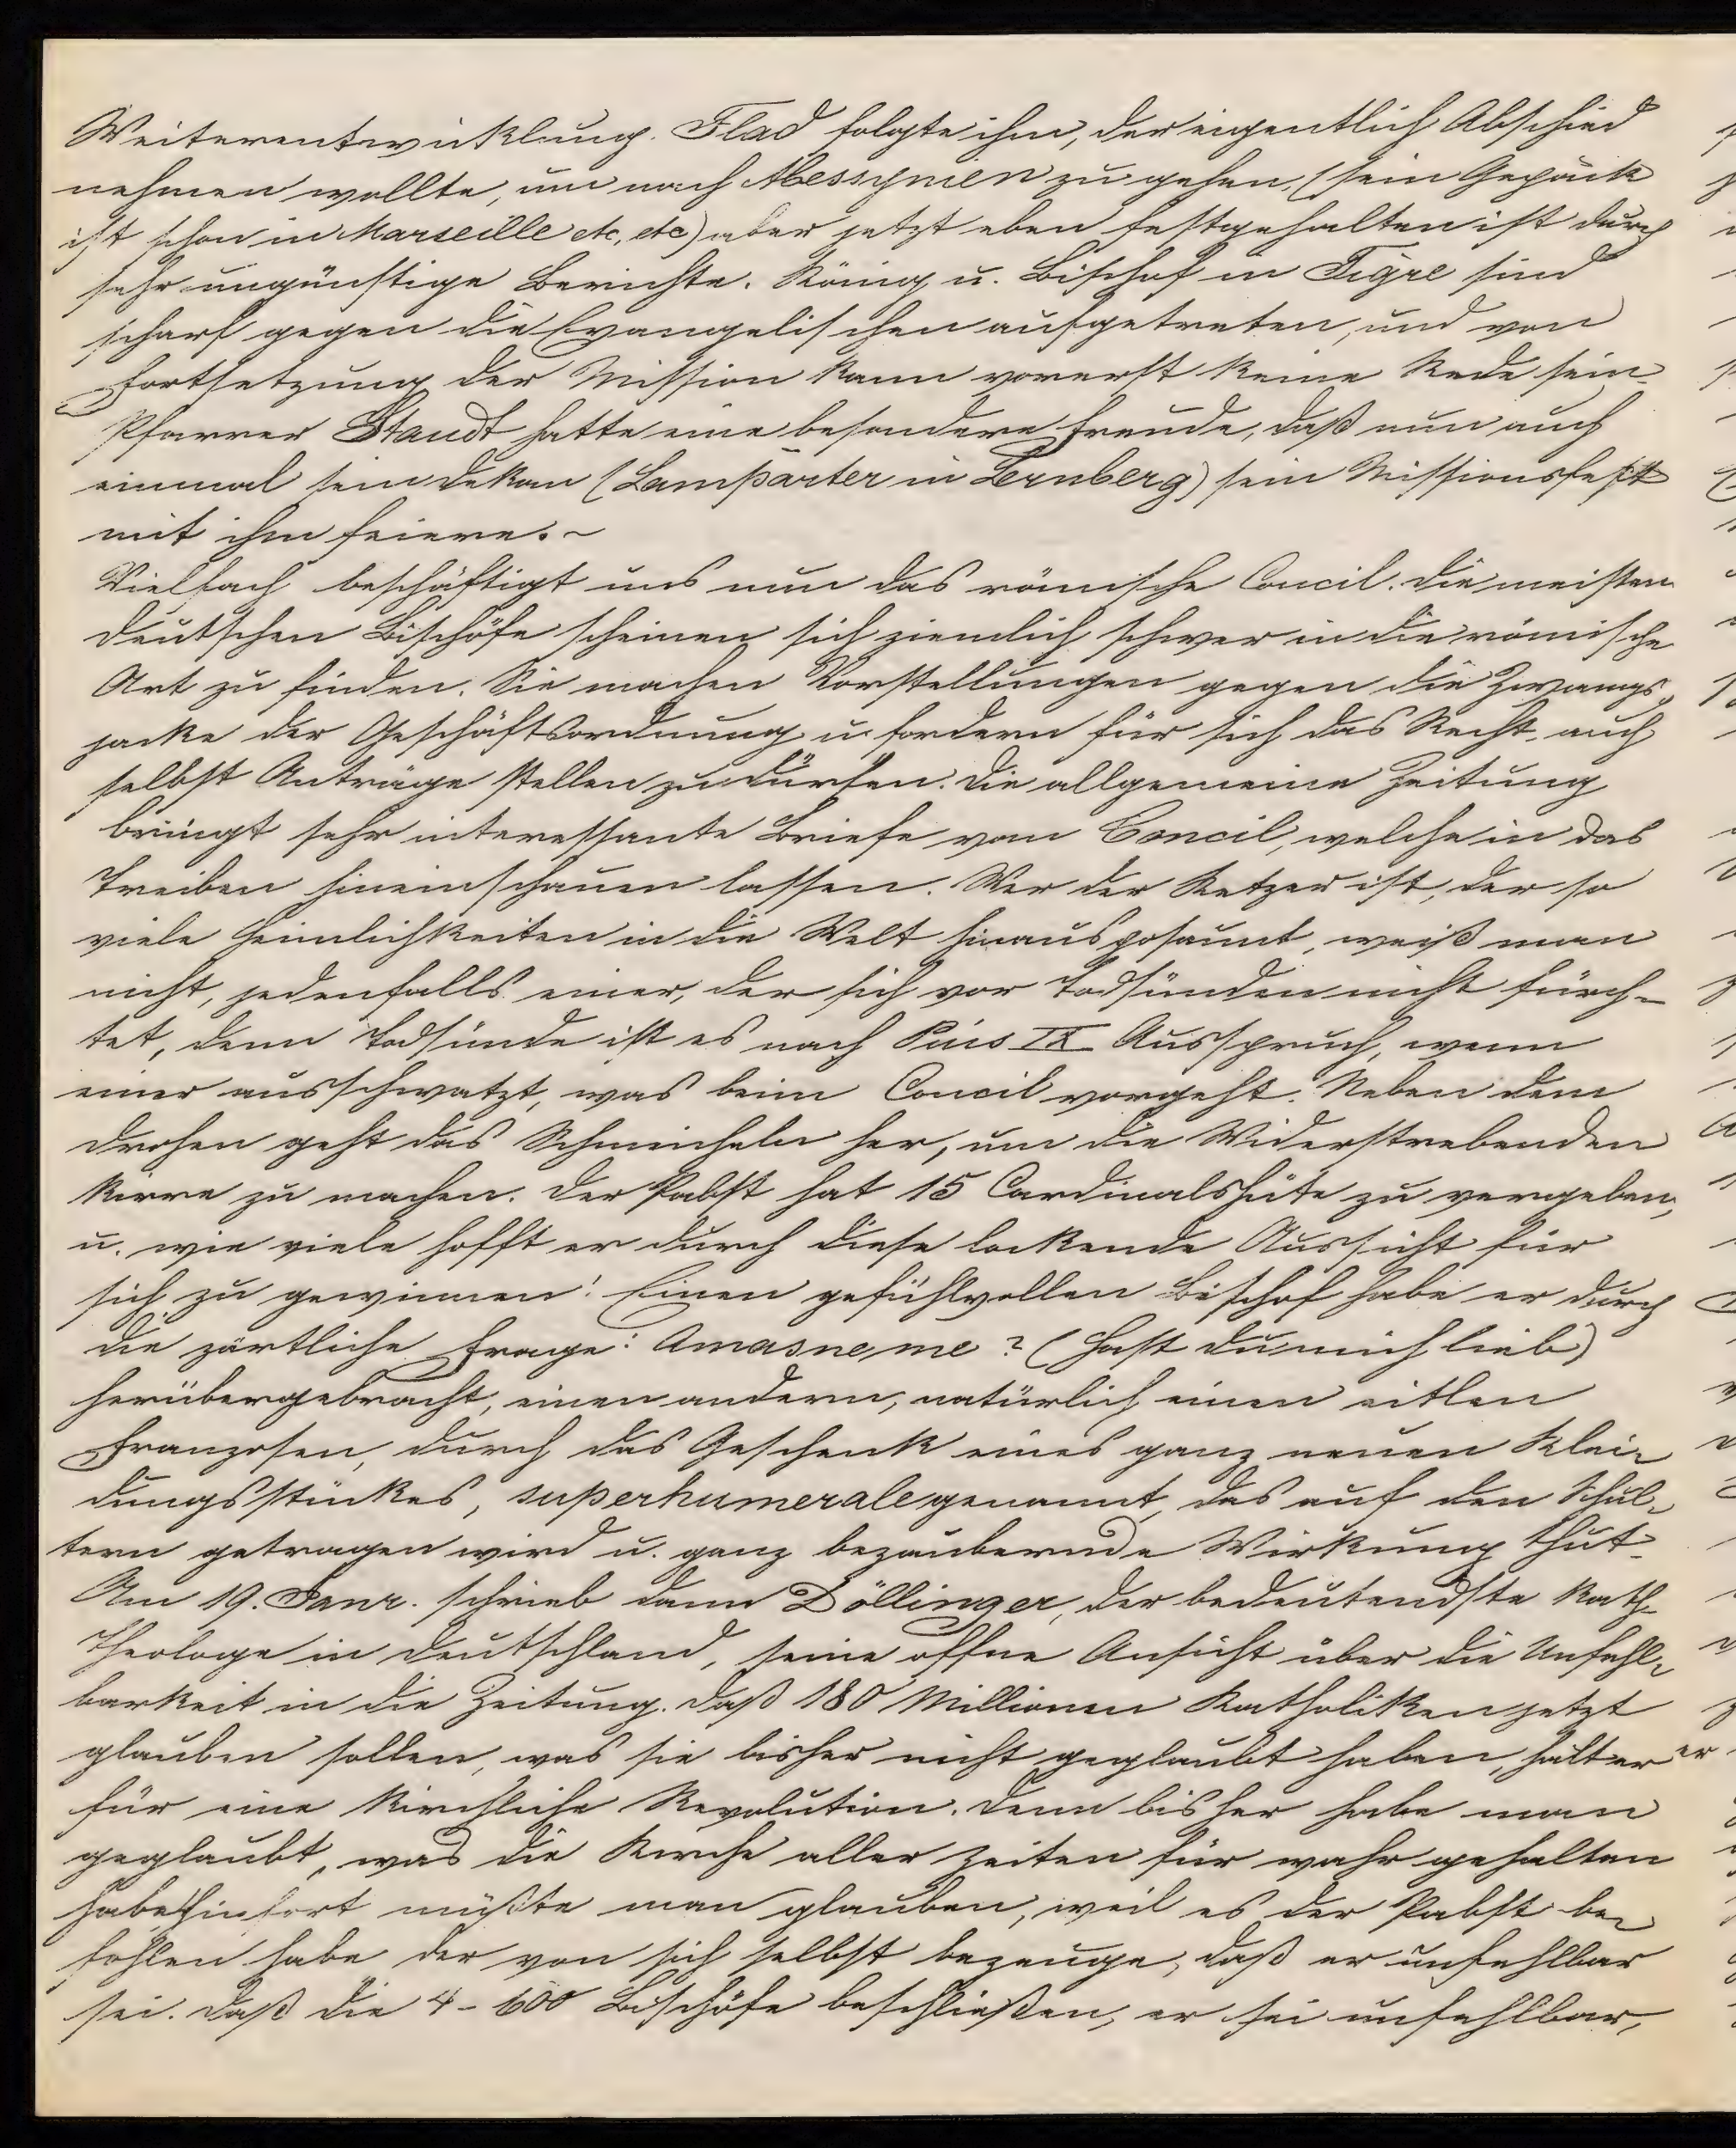 Weiterentwicklung. Flad folgte ihm, der eigentlich Abschied
nehmen wollte, um nach Abessynien zu gehen, (sein Gepäck
ist schon in Marseille etc, etc) aber jetzt eben festgehalten ist durch
sehr ungünstige Berichte. König u. Bischof in Tigre sind
scharf gegen die Evangelischen aufgetreten, und von
Fortsetzung der Mission kann vorerst keine Rede sein.
Pfarrer Staudt hatte eine besondere Freude, daß nun auch
einmal sein Dekan (Lamparter in Leonberg) sein Missionsfest
mit ihm feiere. -
Vielfach beschäftigt uns nun das römische Concil. Die meisten
deutschen Bischöfe scheinen sich ziemlich schwer in die römische
Art zu finden. Sie machen Vorstellungen gegen die Zwangs-
jacke der Geschäftsordnung u. fordern für sich das Recht, auch
selbst Anträge stellen zu dürfen. Die allgemeine Zeitung
bringt sehr interessante Briefe vom Concil, welche in das
Treiben hineinschauen lassen. Wer der Ketzer ist, der so
viele Heimlichkeiten in die Welt hinausposaunt, weiß man
nicht, jedenfalls einer, der sich vor Todsünden nicht fürch-
tet, denn Todsünde ist es nach Pius IX Ausspruch, wenn
einer ausschwatzt, was beim Concil vorgeht. Neben dem
Drohen geht das Schmeicheln her, um die Widerstrebenden
kirre zu machen. Der Pabst hat 15 Cardinalshüte zu vergeben,
u. wie viele hofft er durch diese lockende Aussicht für
sich zu gewinnen! Einen gefühlvollen Bischof habe er durch
die zärtliche Frage: Amasne me? (Hast du mich lieb)
herübergebracht, einen andern, natürlich einen eitlen
Franzosen, durch das Geschenk eines ganz neuen Klei-
dungsstückes, superhumerale genannt, das auf den Schul-
tern getragen wird u. ganz bezaubernde Wirkung thut.
Am 19. Janr. schrieb dann Döllinger, der bedeutendste kath.
Theologe in Deutschland, seine offne Ansicht über die Unfehl-
barkeit in die Zeitung. Daß 180 Millionen Katholiken jetzt
glauben sollen, was sie bisher nicht geglaubt haben, hält er er
für eine kirchliche Revolution. Denn bisher habe man
geglaubt, was die Kirche aller Zeiten für wahr gehalten
habe, hinfort müßte man glauben, weil es der Pabst be-
fohlen habe der von sich selbst bezeuge, daß er unfehlbar
sei. Daß die 4-600 Bischöfe beschließen, er sei unfehlbar,